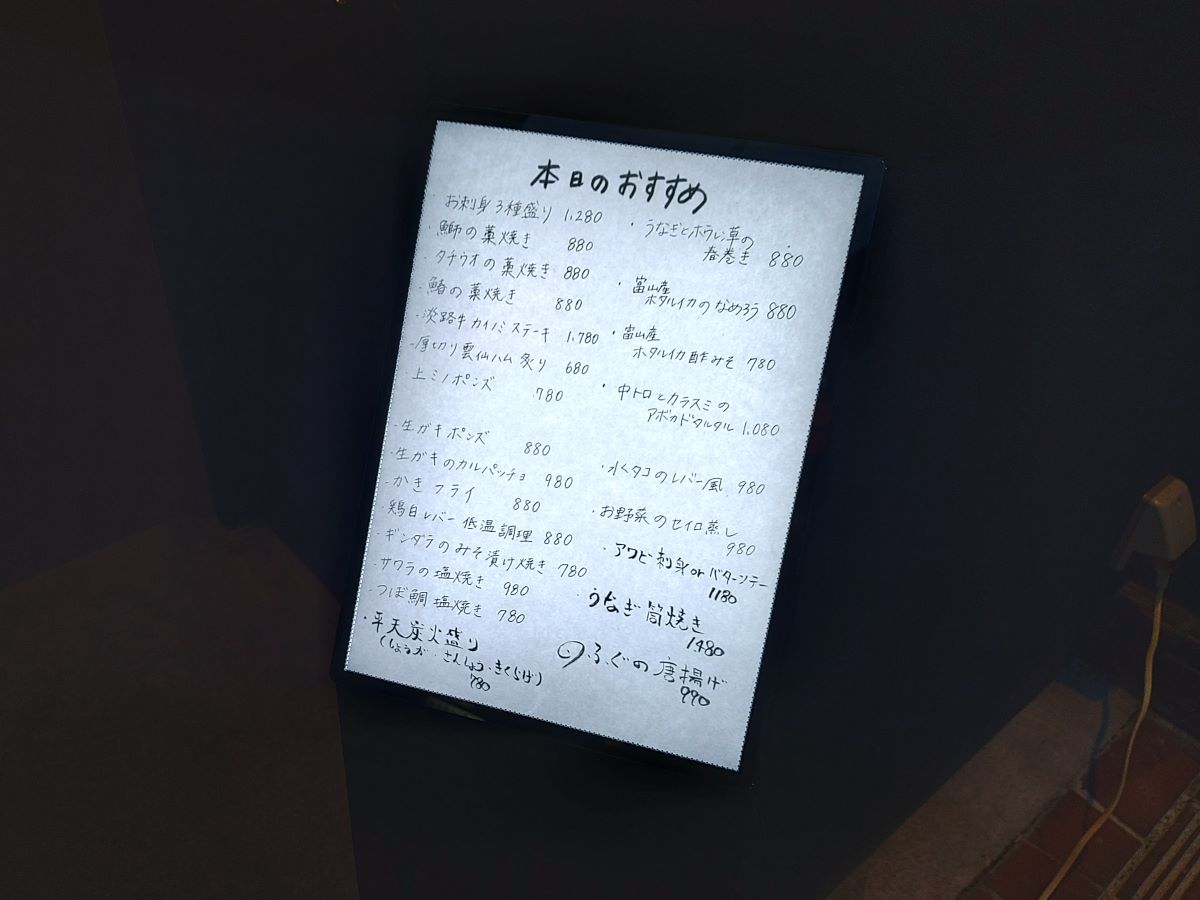 本日のおすすめ
・お刺身3種盛り 1,280
・鰤の藁焼き 880
・タチウオの藁焼き 880
・鰆の藁焼き 880
・淡路牛カイノミステーキ 1,780
・厚切り雲仙ハム炙り 680
・上ミノポンズ 780
・生ガキポンズ 880
・生ガキのカルパッチョ 980
・かきフライ 880
・鶏白レバー低温調理 880
・ギンダラのみそ漬け焼き 780
・サワラの塩焼き 980
・つぼ鯛塩焼き 780
・平天炭火盛り
(しょうが・さんしょう・きくらげ)
780
・うなぎとホウレン草の
春巻き 880
・富山産
ホタルイカのなめろう 880
・富山産
ホタルイカ酢みそ 780
・中トロとカラスミの
アボカドタルタル 1,080
・水タコのレバー風 980
・お野菜のセイロ蒸し
980
・アワビ刺身orバターソテー
1180
・うなぎ筒焼き
1480
ふぐの唐揚げ
990